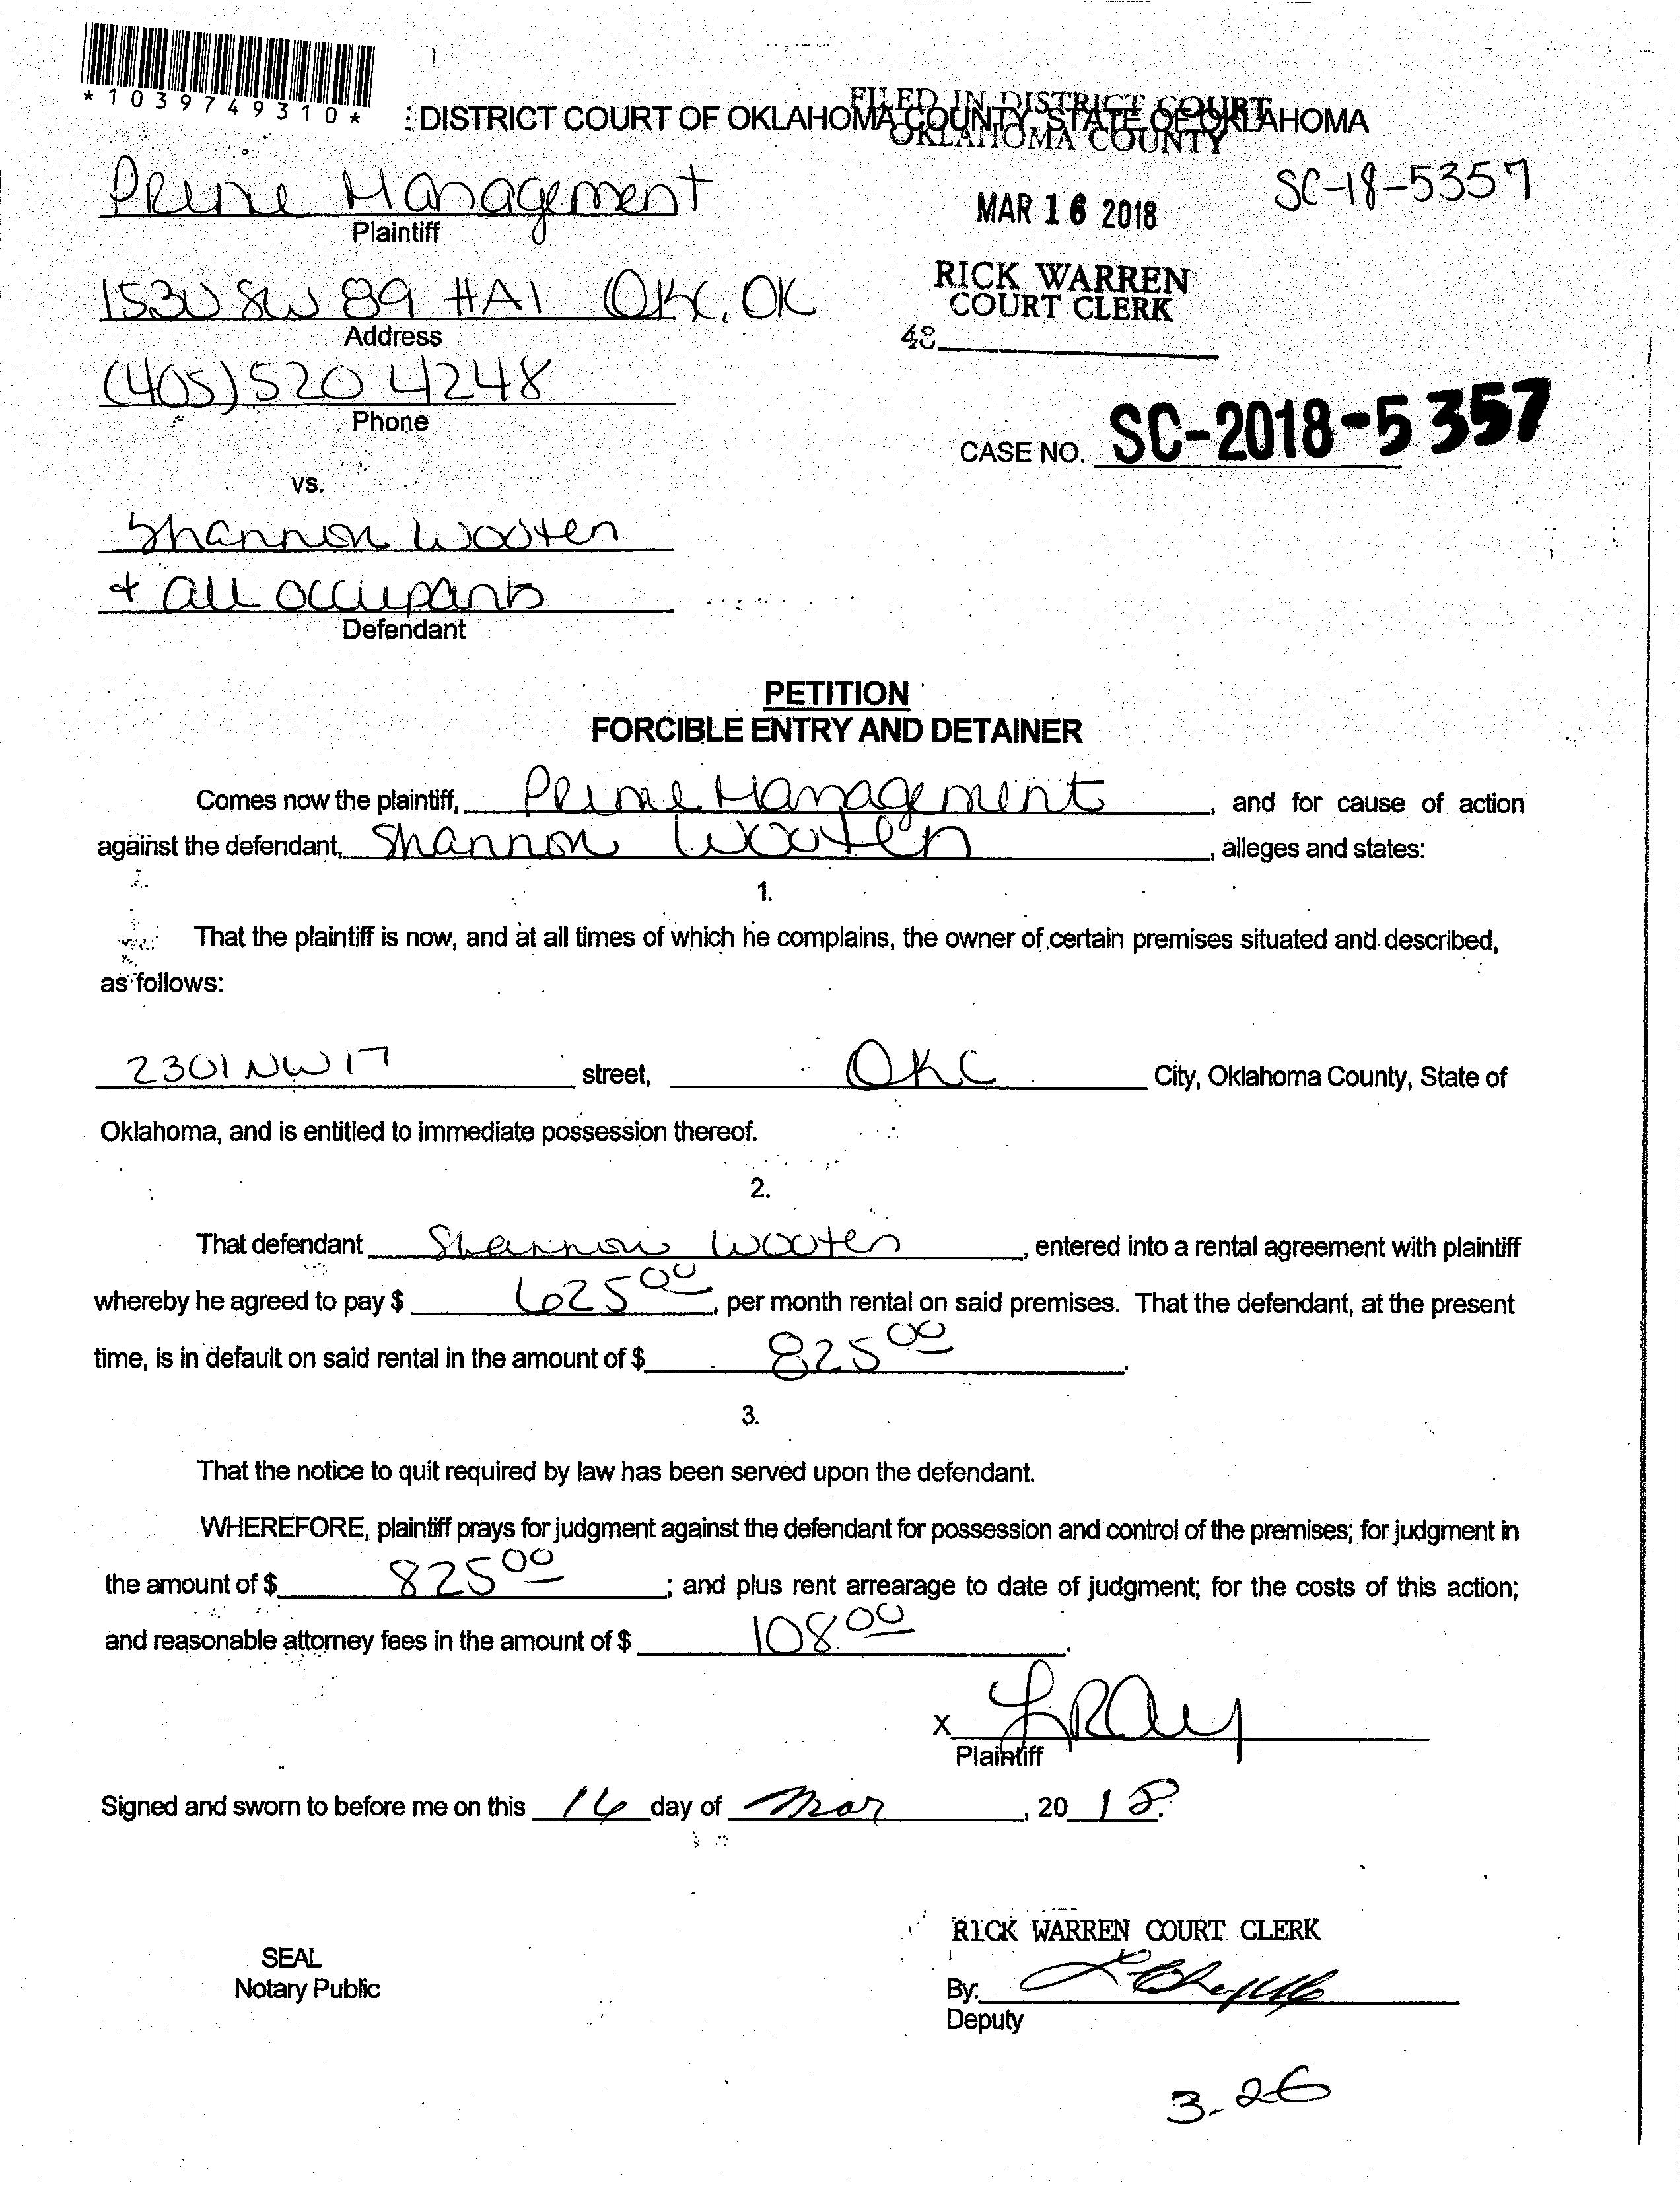 *1039749310*
: DISTRICT COURT OF OKLAHOMA COUNTY, STATE OF OKLAHOMA
FILED IN DISTRICT COURT
OKLAHOMA COUNTY
Prime Management
Plaintiff
MAR 16 2018
SC-18-5357
1530 SW 89 #A1 OKC, OK
Address
RICK WARREN
COURT CLERK
48
(405) 520 4248
Phone
CASE NO. SC-2018-5357
vs.
Shannon Wooten
+ all occupants
Defendant
PETITION
FORCIBLE ENTRY AND DETAINER
Comes now the plaintiff, Prime Management, and for cause of action
against the defendant, Shannon Wooten, alleges and states:
1.
That the plaintiff is now, and at all times of which he complains, the owner of certain premises situated and described,
as follows:
2301 NW 17 street, OKC City, Oklahoma County, State of
Oklahoma, and is entitled to immediate possession thereof.
2.
That defendant Shannon Wooten, entered into a rental agreement with plaintiff
whereby he agreed to pay $ 625 00, per month rental on said premises. That the defendant, at the present
time, is in default on said rental in the amount of $ 825 00.
3.
That the notice to quit required by law has been served upon the defendant.
WHEREFORE, plaintiff prays for judgment against the defendant for possession and control of the premises; for judgment in
the amount of $ 825 00; and plus rent arrearage to date of judgment; for the costs of this action;
and reasonable attorney fees in the amount of $ 108.00.
X LRay
Plaintiff
Signed and sworn to before me on this 16 day of Mar, 20 18.
RICK WARREN COURT CLERK
SEAL
Notary Public
By:
Deputy
3-26